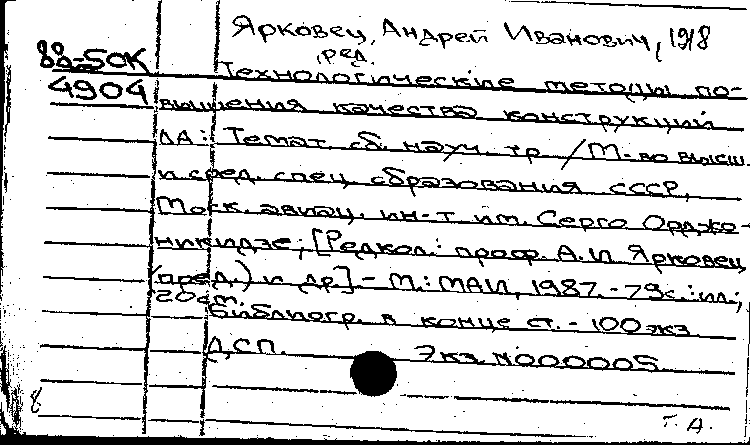 Ярковец, Андрей Иванович, 1918
, ред.
88-5ОК
4904
Технологические методы по-
вышения качества конструкций
ЛА: Темат. сб. науч. тр. / М-во высш.
и сред. спец. образования СССР,
Моск. авиац. ин-т им. Серго Орджо-
никидзе; [Редкол.: проф. А. И. Ярковец
(пред.) и др.]. - М.: МАИ, 1987. - 79с.: ил.;
20 см.
Библиогр. в конце ст. - 100 экз.
ДСП. Экз. N000005
8
Г. А.